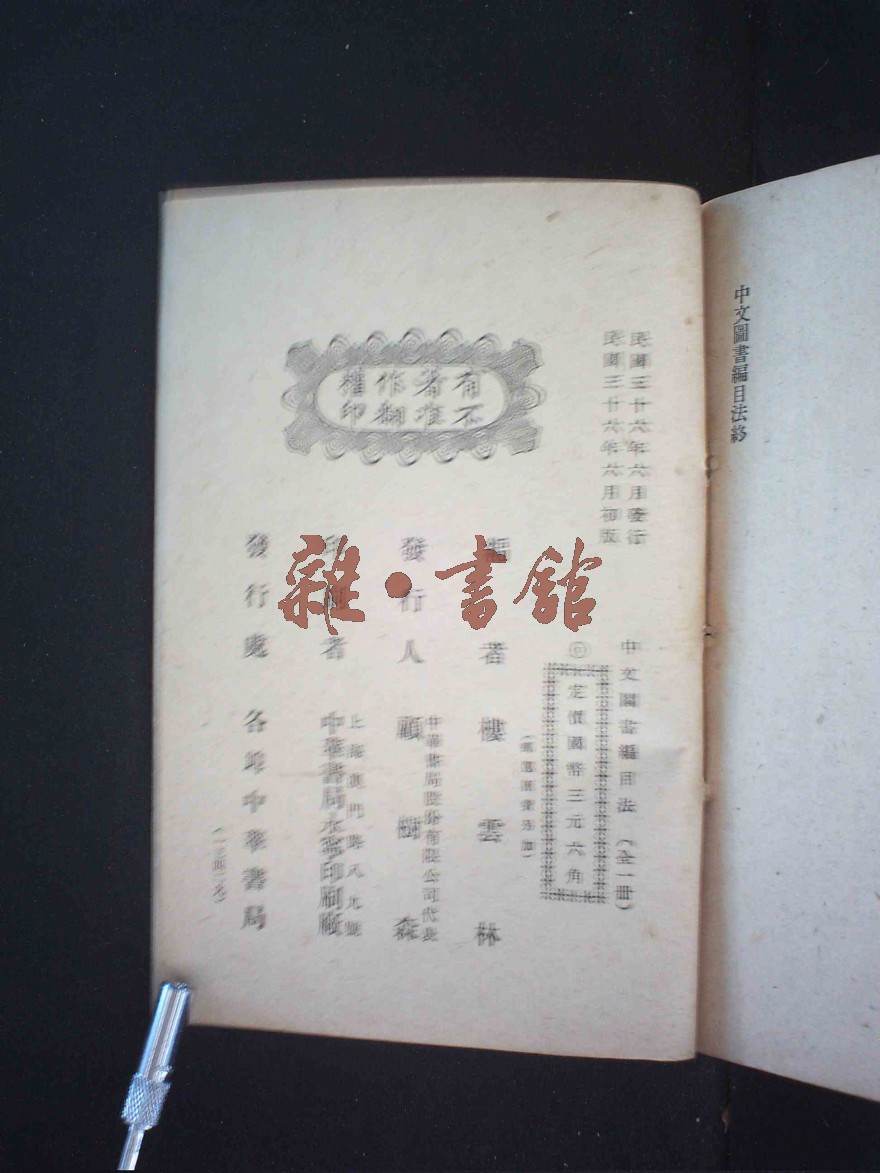 中文圖書編目法終
民國三十六年六月發行
民國三十六年六月初版
中文圖書編目法（全一冊）
定價國幣三元六角
（郵運匯費另加）
編者 樓雲林
中華書局股份有限公司代表
發行人 顧樹森
上海澳門路八九號
印刷者 中華書局永寧印刷廠
發行處 各埠中華書局
有著作權
不准翻印
雜·書館